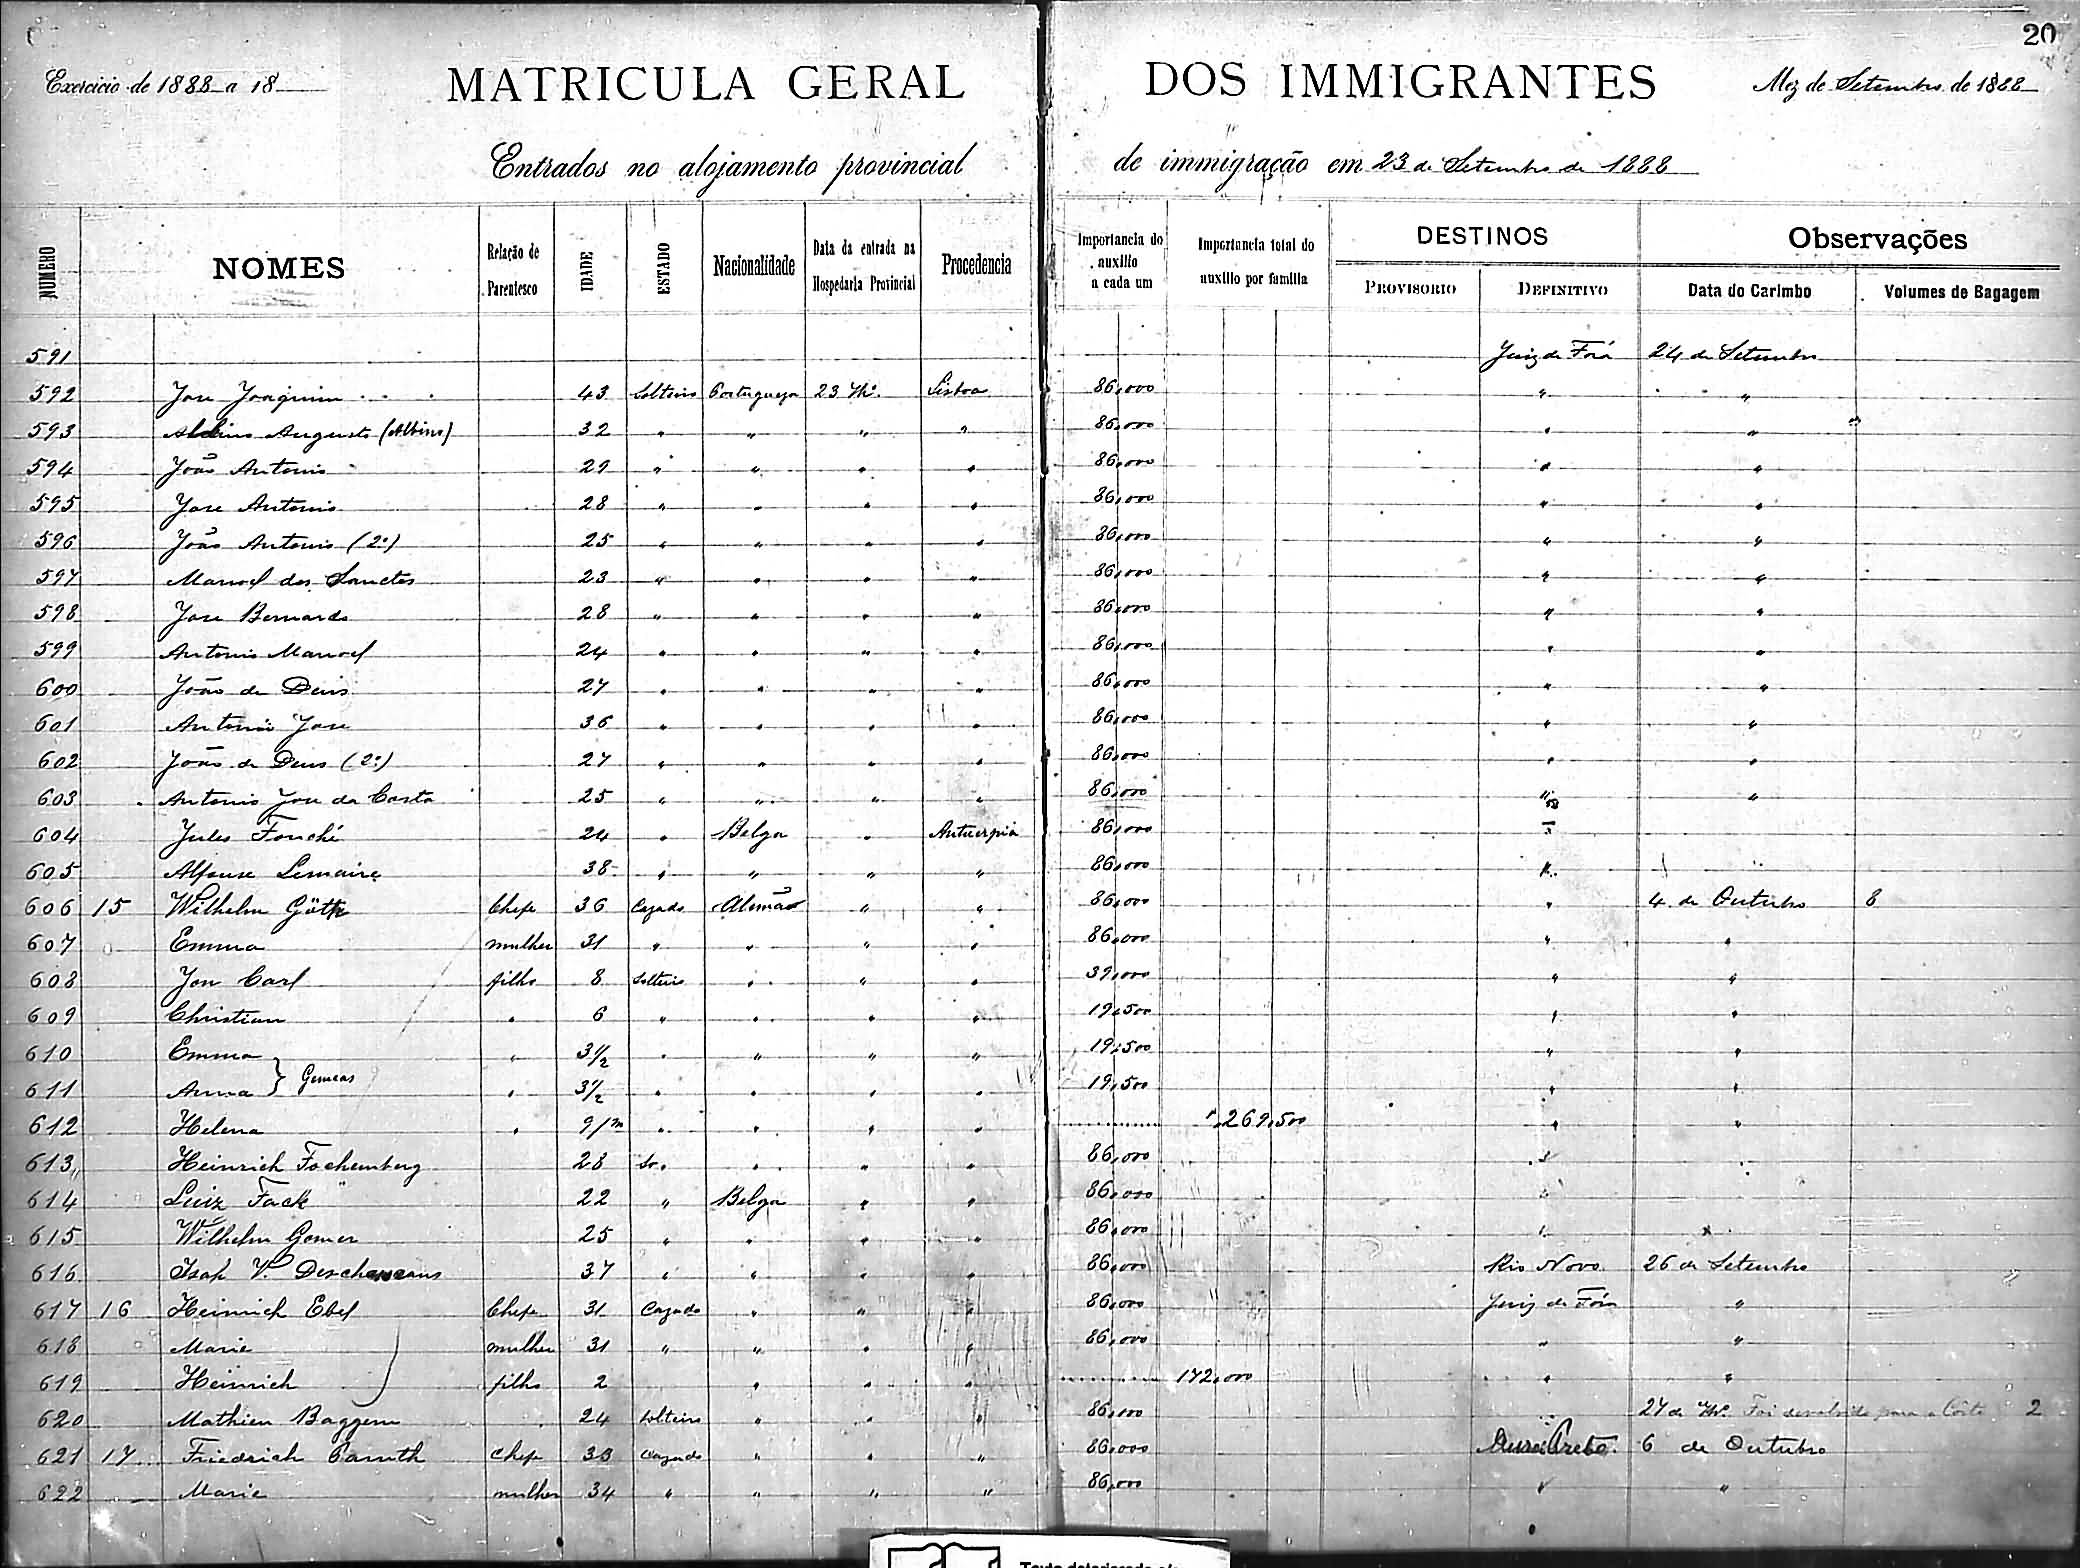 20
Exercicio de 1888 a 18
MATRICULA GERAL DOS IMMIGRANTES
Mez de Setembro de 1888
Entrados no alojamento provincial de immigração em 23 de Setembro de 1888
NUMERO NOMES Relação de Parentesco IDADE ESTADO Nacionalidade Data da entrada na Hospedaria Provincial Procedencia Importancia do auxilio a cada um Importancia total do auxilio por familia DESTINOS PROVISORIO DEFINITIVO Observações Data do Carimbo Volumes de Bagagem
591 Juiz de Fóra 24 de Setembro
592 Jose Joaquim 43 Solteiro Portugueza 23 7bro Lisboa 86,000 " "
593 Augusto (Albino) 32 " " " " 86,000 " "
594 João Antonio 29 " " " " 86,000 " "
595 Jose Antonio 28 " " " " 86,000 " "
596 João Antonio (2º) 25 " " " " 86,000 " "
597 Manoel dos Sanctos 23 " " " " 86,000 " "
598 Jose Bernardo 28 " " " " 86,000 " "
599 Antonio Manoel 24 " " " " 86,000 " "
600 João de Deus 27 " " " " 86,000 " "
601 Antonio Jose 36 " " " " 86,000 " "
602 João de Deus (2º) 27 " " " " 86,000 " "
603 Antonio Jose da Costa 25 " " " " 86,000 " "
604 Jules Fouché 24 " Belga " Antuerpia 86,000 "
605 Alfonse Lemaire 38 " " " " 86,000 "
606 15 Wilhelm Göth Chefe 36 Cazado Alemão " " 86,000 " 4 de Outubro 8
607 Emma mulher 31 " " " " 86,000 " "
608 Jon Carl filho 8 Solteiro " " " 39,000 " "
609 Christian " 6 " " " " 19,500 " "
610 Emma } Gemeas " 3 1/2 " " " " 19,500 " "
611 Anna " 3 1/2 " " " " 19,500 " "
612 Helena " 9/m " " " " 269,500 " "
613 Heinrich Fochemberg 28 So. " " " 86,000 " "
614 Luiz Fack 22 " Belga " " 86,000 "
615 Wilhelm Gomer 25 " " " " 86,000 " "
616 Isak V. 37 " " " " 86,000 Rio Novo 26 de Setembro
617 16 Heinrich Ebel Chefe 31 Cazado " " " 86,000 Juiz de Fóra "
618 Marie mulher 31 " " " " 86,000 " "
619 Heinrich filho 2 " " " 172,000 " "
620 Mathieu Baggem 24 Solteiro " " " 86,000 27 de 7bro. Foi devolvido para a Côrte 2
621 17 Friedrich Camth Chefe 33 Cazado " " " 86,000 Ouro Preto. 6 de Outubro
622 Marie mulher 34 " " " " 86,000 " "